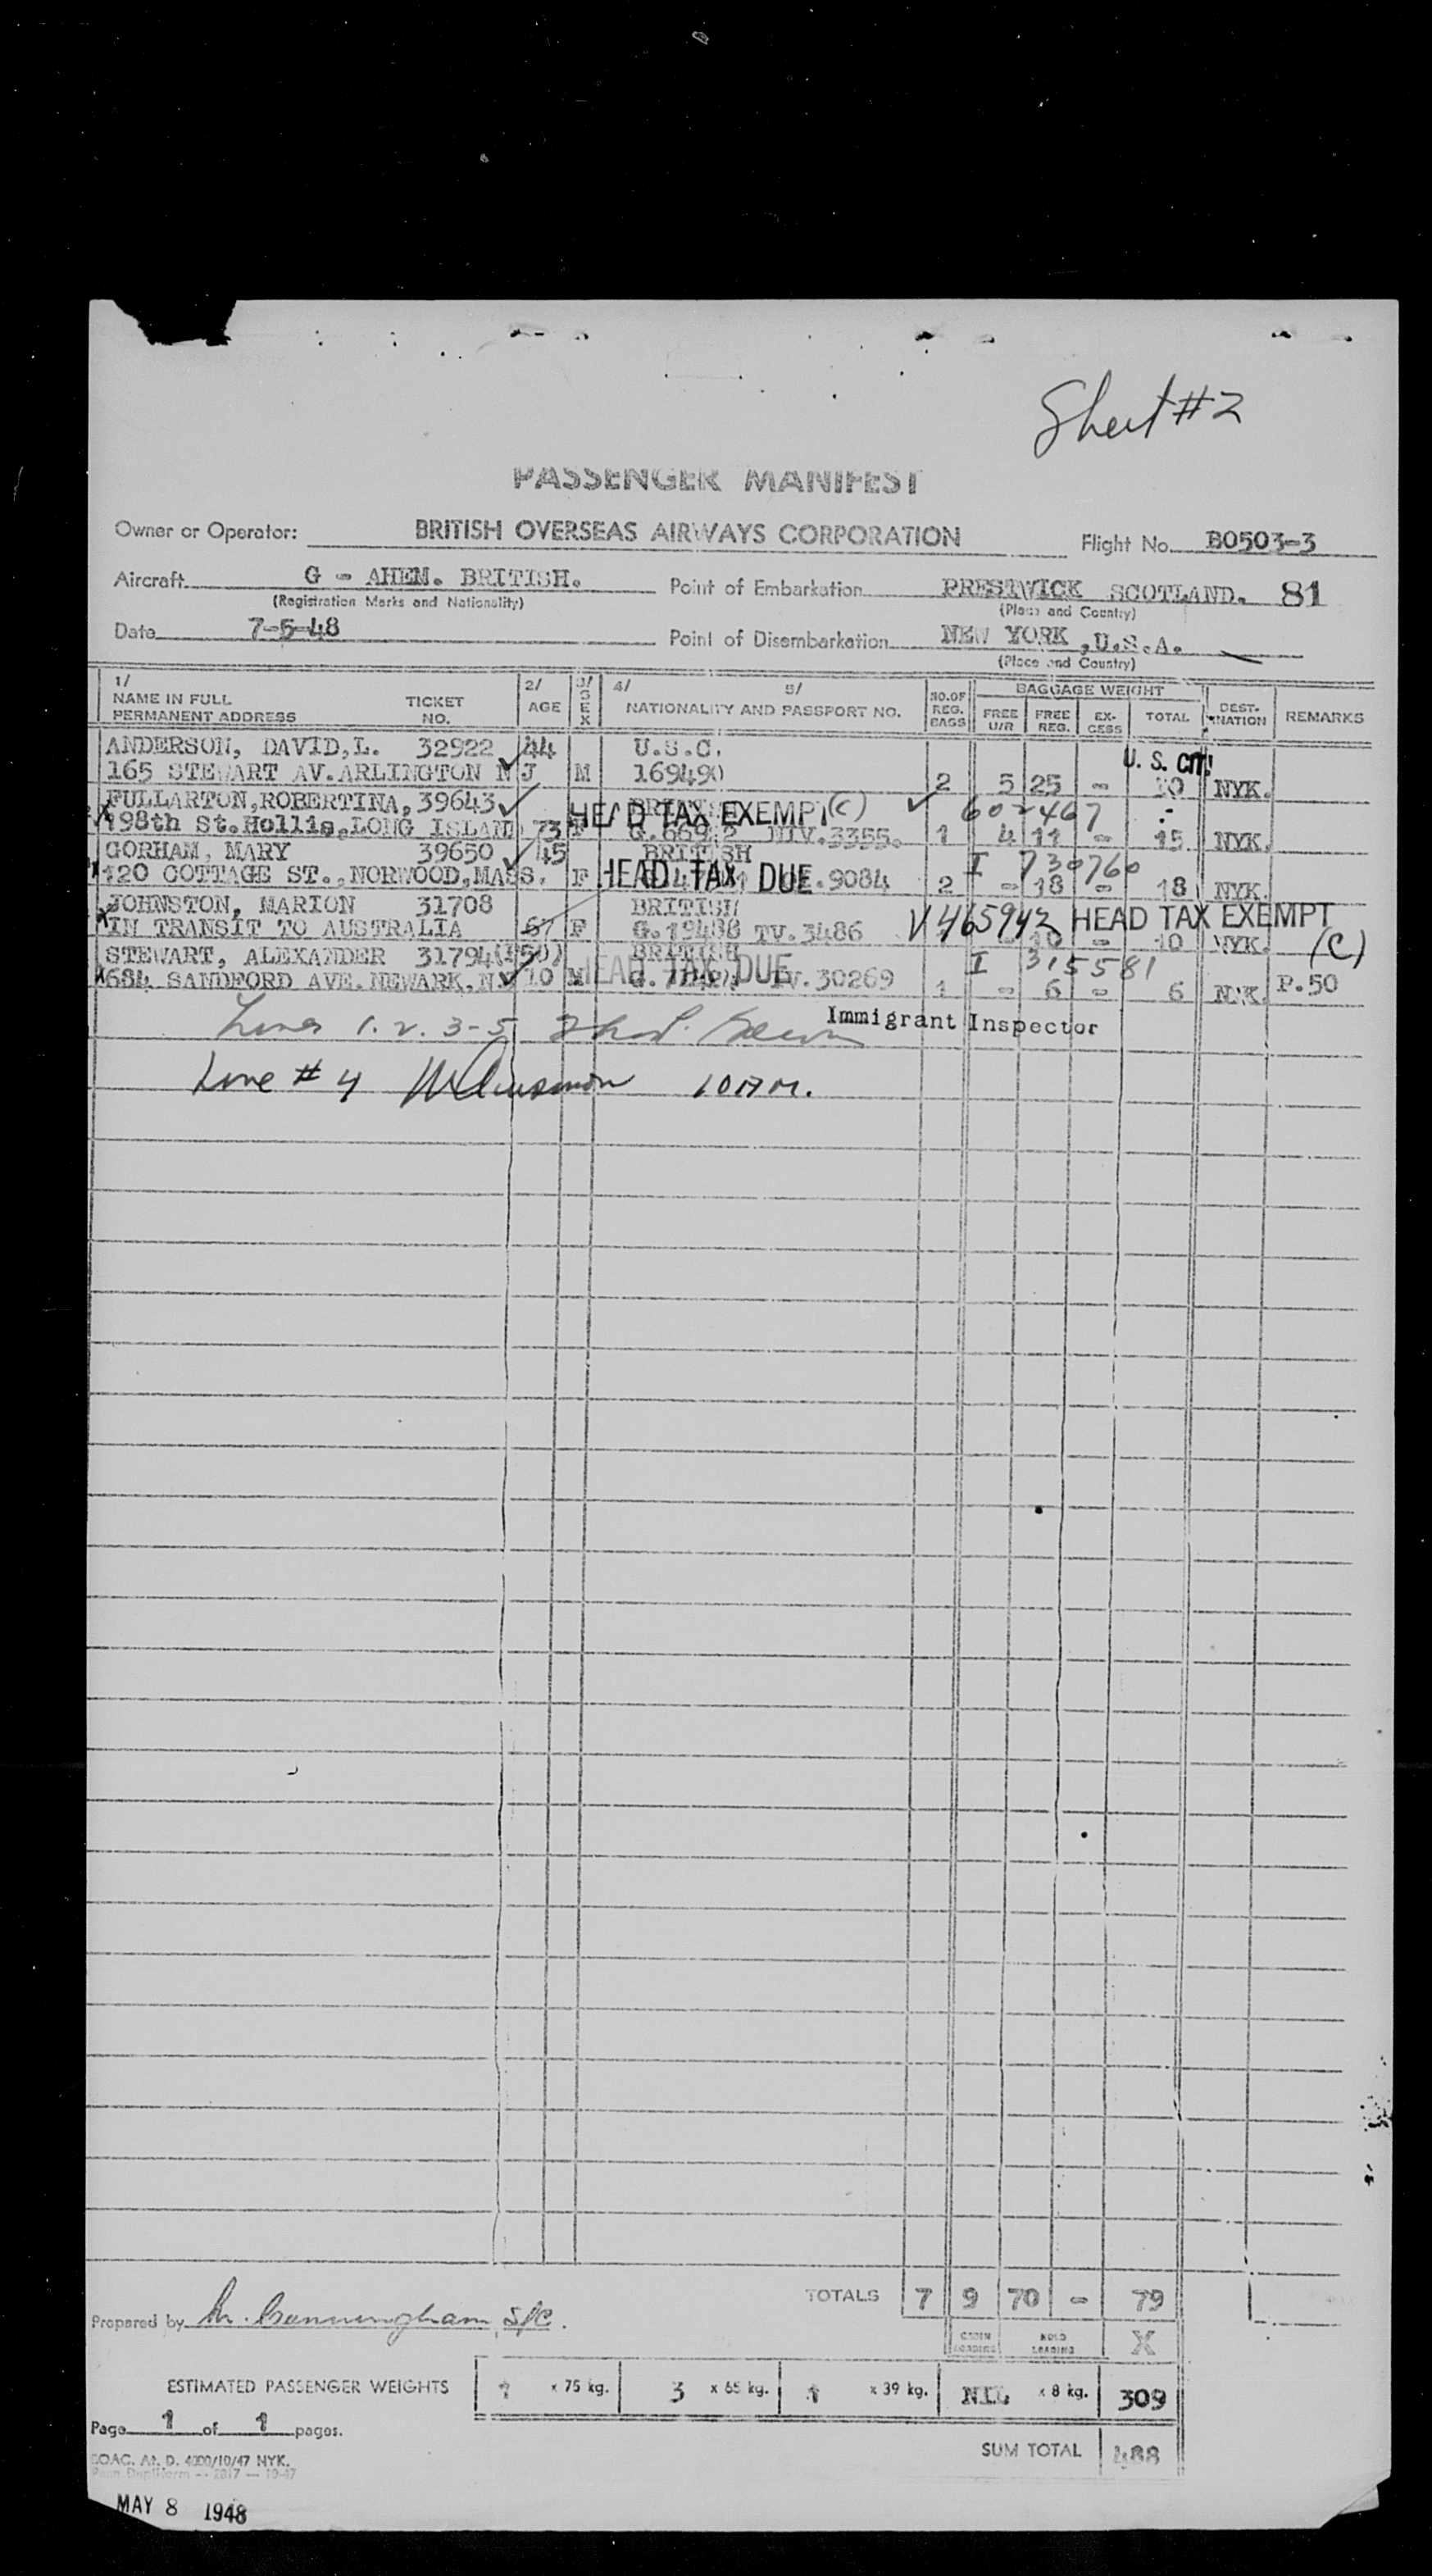 Sheet #2
PASSENGER MANIFEST
Owner or Operator: BRITISH OVERSEAS AIRWAYS CORPORATION Flight No. B0503-3
Aircraft G - AHEM. BRITISH. Point of Embarkation PRESTWICK SCOTLAND. 81
(Registration Marks and Nationality) (Place and Country)
Date 7-5-48 Point of Disembarkation NEW YORK, U.S.A.
(Place and Country)
1/ 2/ 3/ 4/ 5/ BAGGAGE WEIGHT
NAME IN FULL TICKET AGE SEX NATIONALITY AND PASSPORT NO. NO. OF REG. BAGS FREE U/R FREE REG. EX-CESS TOTAL DEST-INATION REMARKS
PERMANENT ADDRESS NO.
ANDERSON, DAVID, L. 32922 44 U.S.C. U. S. CIT.
165 STEWART AV. ARLINGTON N J M 169490 2 5 25 - NYK.
FULLARTON, ROBERTINA, 39643 HEAD TAX EXEMPT (C) 602467
198th St. Hollis, LONG ISLAND 73 F 3355. 1 4 11 - 15 NYK.
GORHAM, MARY 39650 45 BRITISH I 730760
120 COTTAGE ST., NORWOOD, MASS. F HEAD TAX DUE .9084 2 - 18 - 18 NYK.
JOHNSTON, MARION 31708 BRITISH V 465942 HEAD TAX EXEMPT
IN TRANSIT TO AUSTRALIA 67 F G.19488 TV.3486 10 - 10 NYK. (C)
STEWART, ALEXANDER 31794(P50) BRITISH I 315581
684 SANDFORD AVE. NEWARK. N.J 10 M HEAD TAX DUE 30269 1 - 6 - 6 NYK. P.50
Lines 1. 2. 3-5 Immigrant Inspector
Line # 4 10 AM.
TOTALS 7 9 70 - 79
Prepared by M. Cunningham, S/C.
CABIN LOADING HOLD LOADING X
ESTIMATED PASSENGER WEIGHTS 1 x 75 kg. 3 x 65 kg. 1 x 39 kg. NIL x 8 kg. 309
Page 1 of 1 pages.
SUM TOTAL 488
BOAC. At. D. 4000/10/47 NYK.
MAY 8 1948